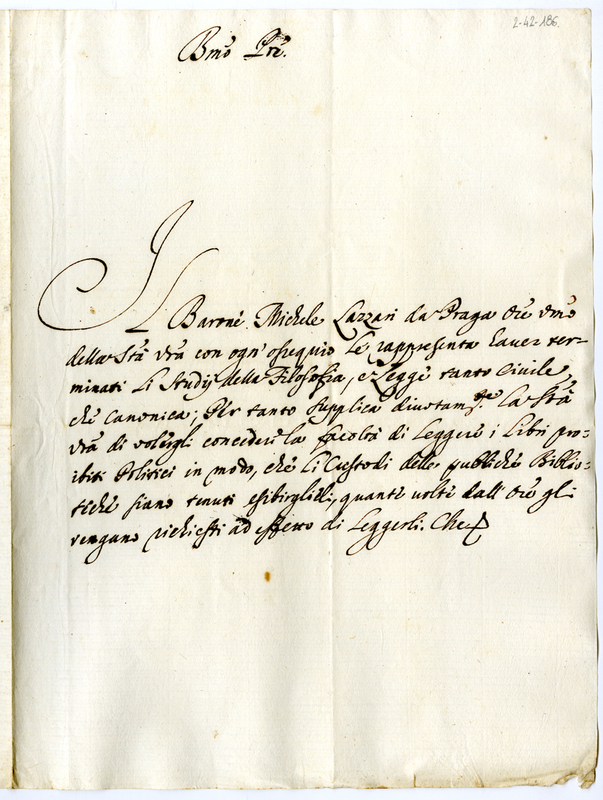 2-42-186.
Bmo Prē.
Il Barone Michele Lazzari da Praga Ore Umo
della Stà Vrā con ogn'ossequio Le rappresenta haver ter=
minati Li Studij della Filosofia, e Legge tanto Civile,
che Canonica; Per tanto supplica divotamte. La Stà
Vrā di volergli concedere la facoltà di Leggere i Libri pro=
ibiti Politici in modo, che Li Custodi delle pubbliche Biblio=
teche siano tenuti esibirglieli, quante volte dall'Ore gli
vengano richiesti ad effetto di Leggerli. Che